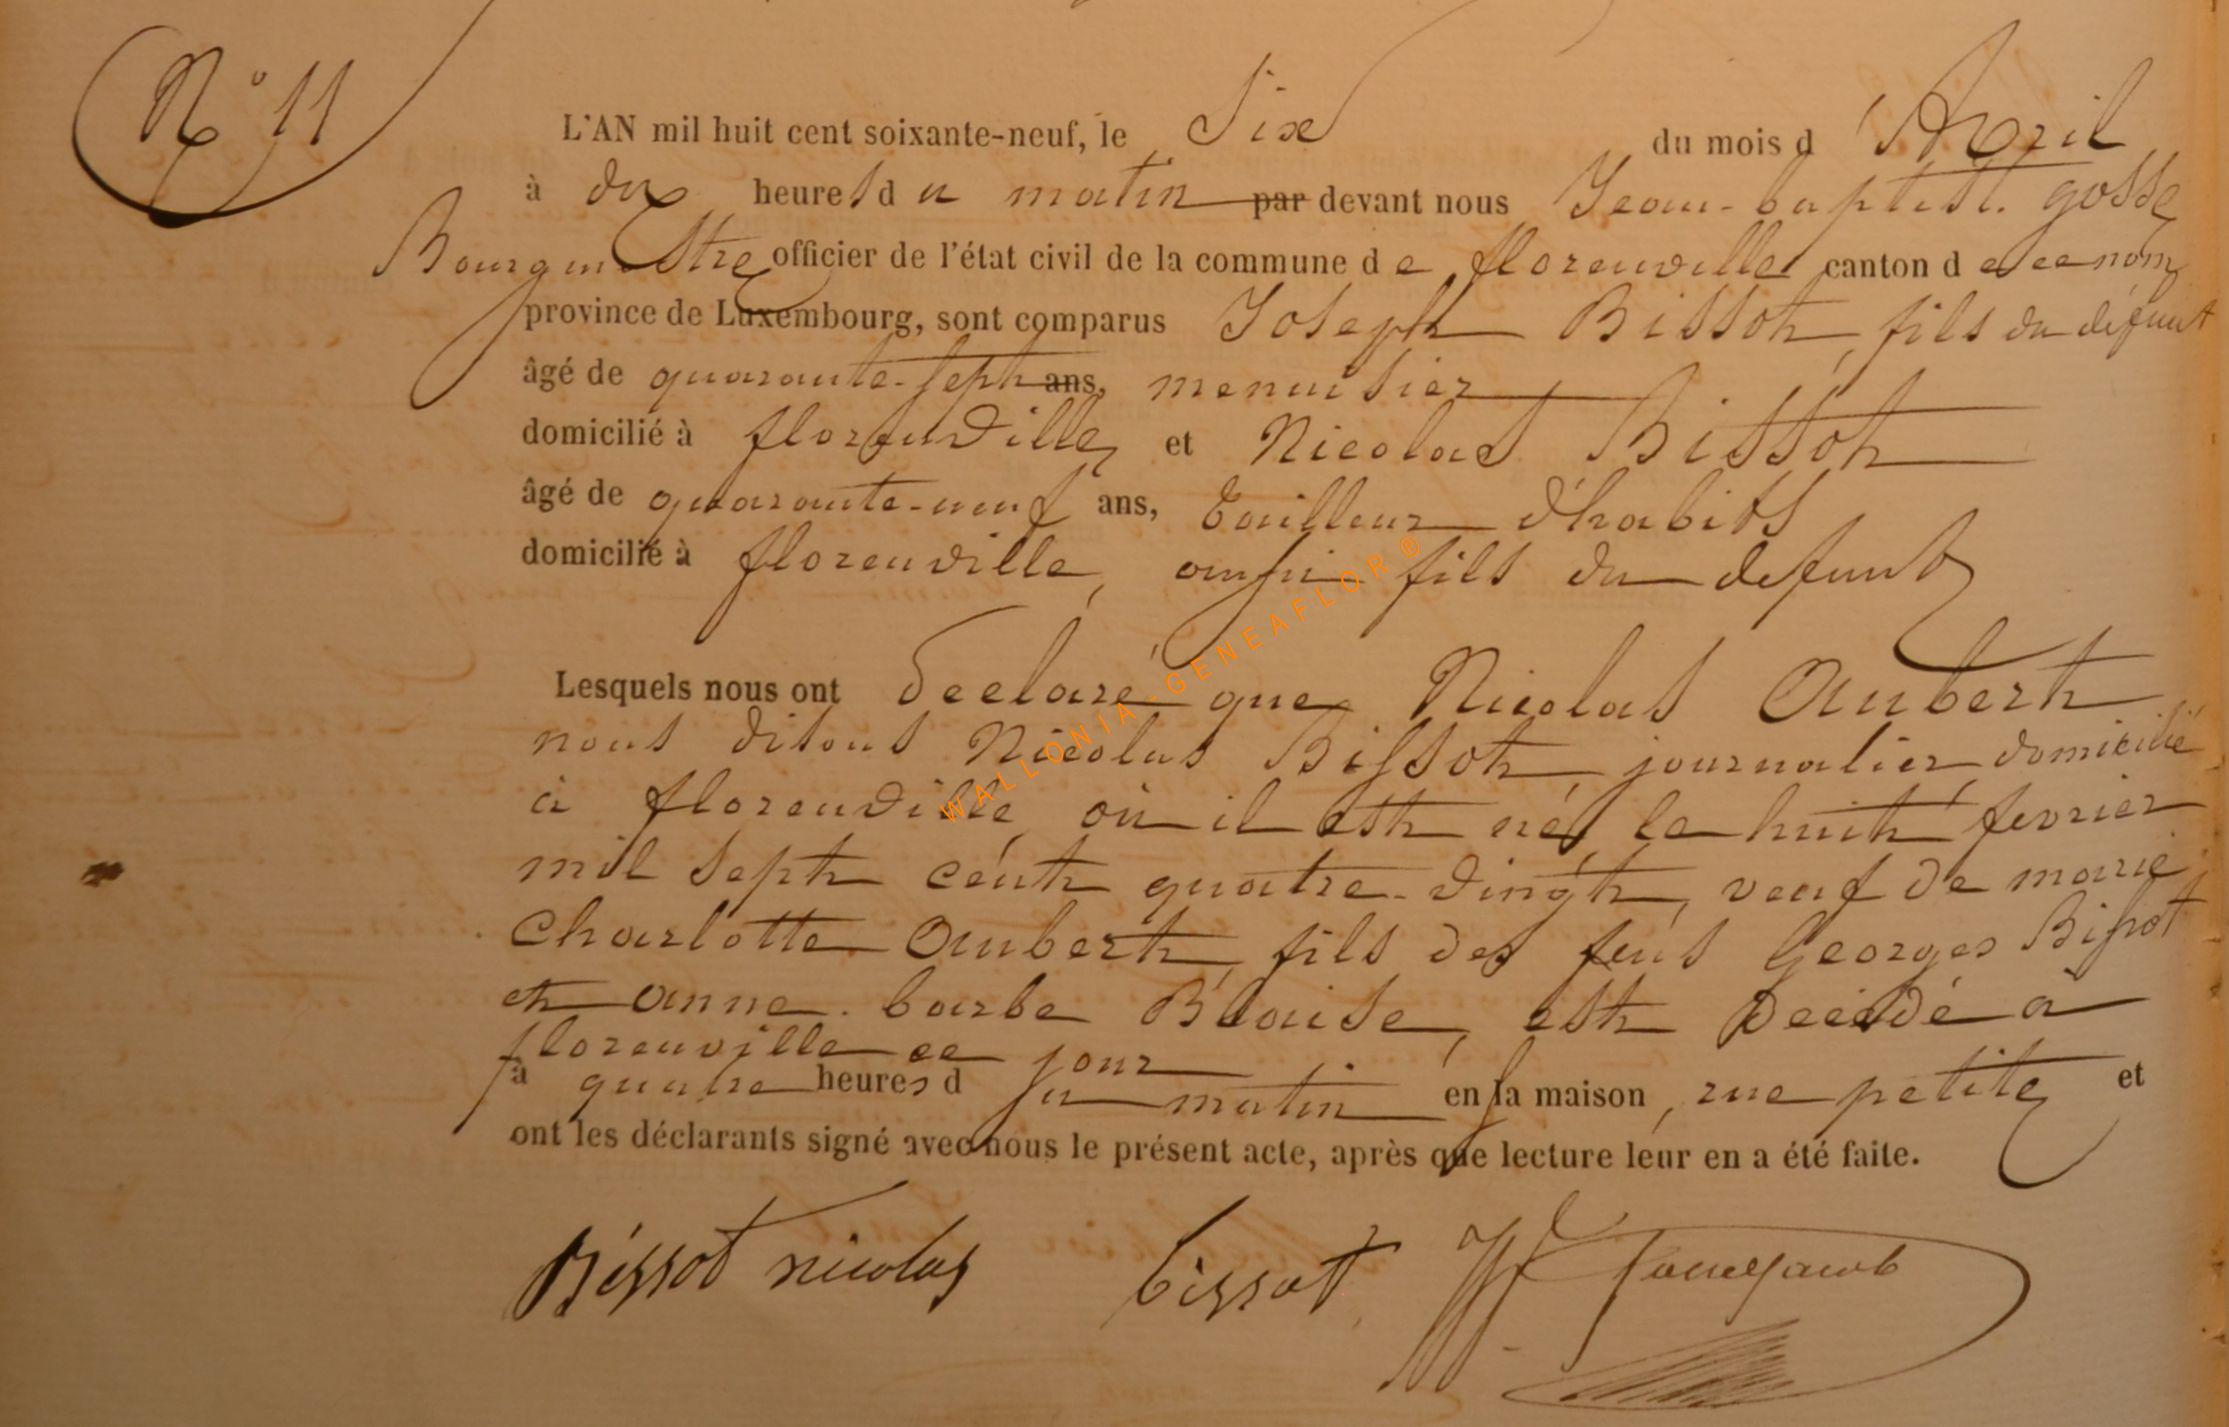 N° 11
L'AN mil huit cent soixante-neuf, le Six du mois d'Avril
à dix heures du matin par devant nous Jean-baptist. gosse
Bourgmestre officier de l'état civil de la commune de florenville canton de ce nom
province de Luxembourg, sont comparus Joseph Bissot, fils du défunt
âgé de quarante-sept ans, menuisier
domicilié à florenville et Nicolas Bissot
âgé de quarante-neuf ans, tailleur d'habits
domicilié à florenville, aussi fils du defunt
Lesquels nous ont déclaré que Nicolas Aubert
nous disons Nicolas Bissot, journalier domicilié
à florenville où il est né le huit fevrier
mil sept cent quatre-vingt, veuf de marie
Charlotte Aubert, fils des feus Georges Bissot
et anne-barbe Blaise, est décédé à
florenville ce jour
à quatre heures du matin en sa maison, rue petite et
ont les déclarants signé avec nous le présent acte, après que lecture leur en a été faite.
Bissot nicolas bissot
WALLONIA-GENEAFLOR®